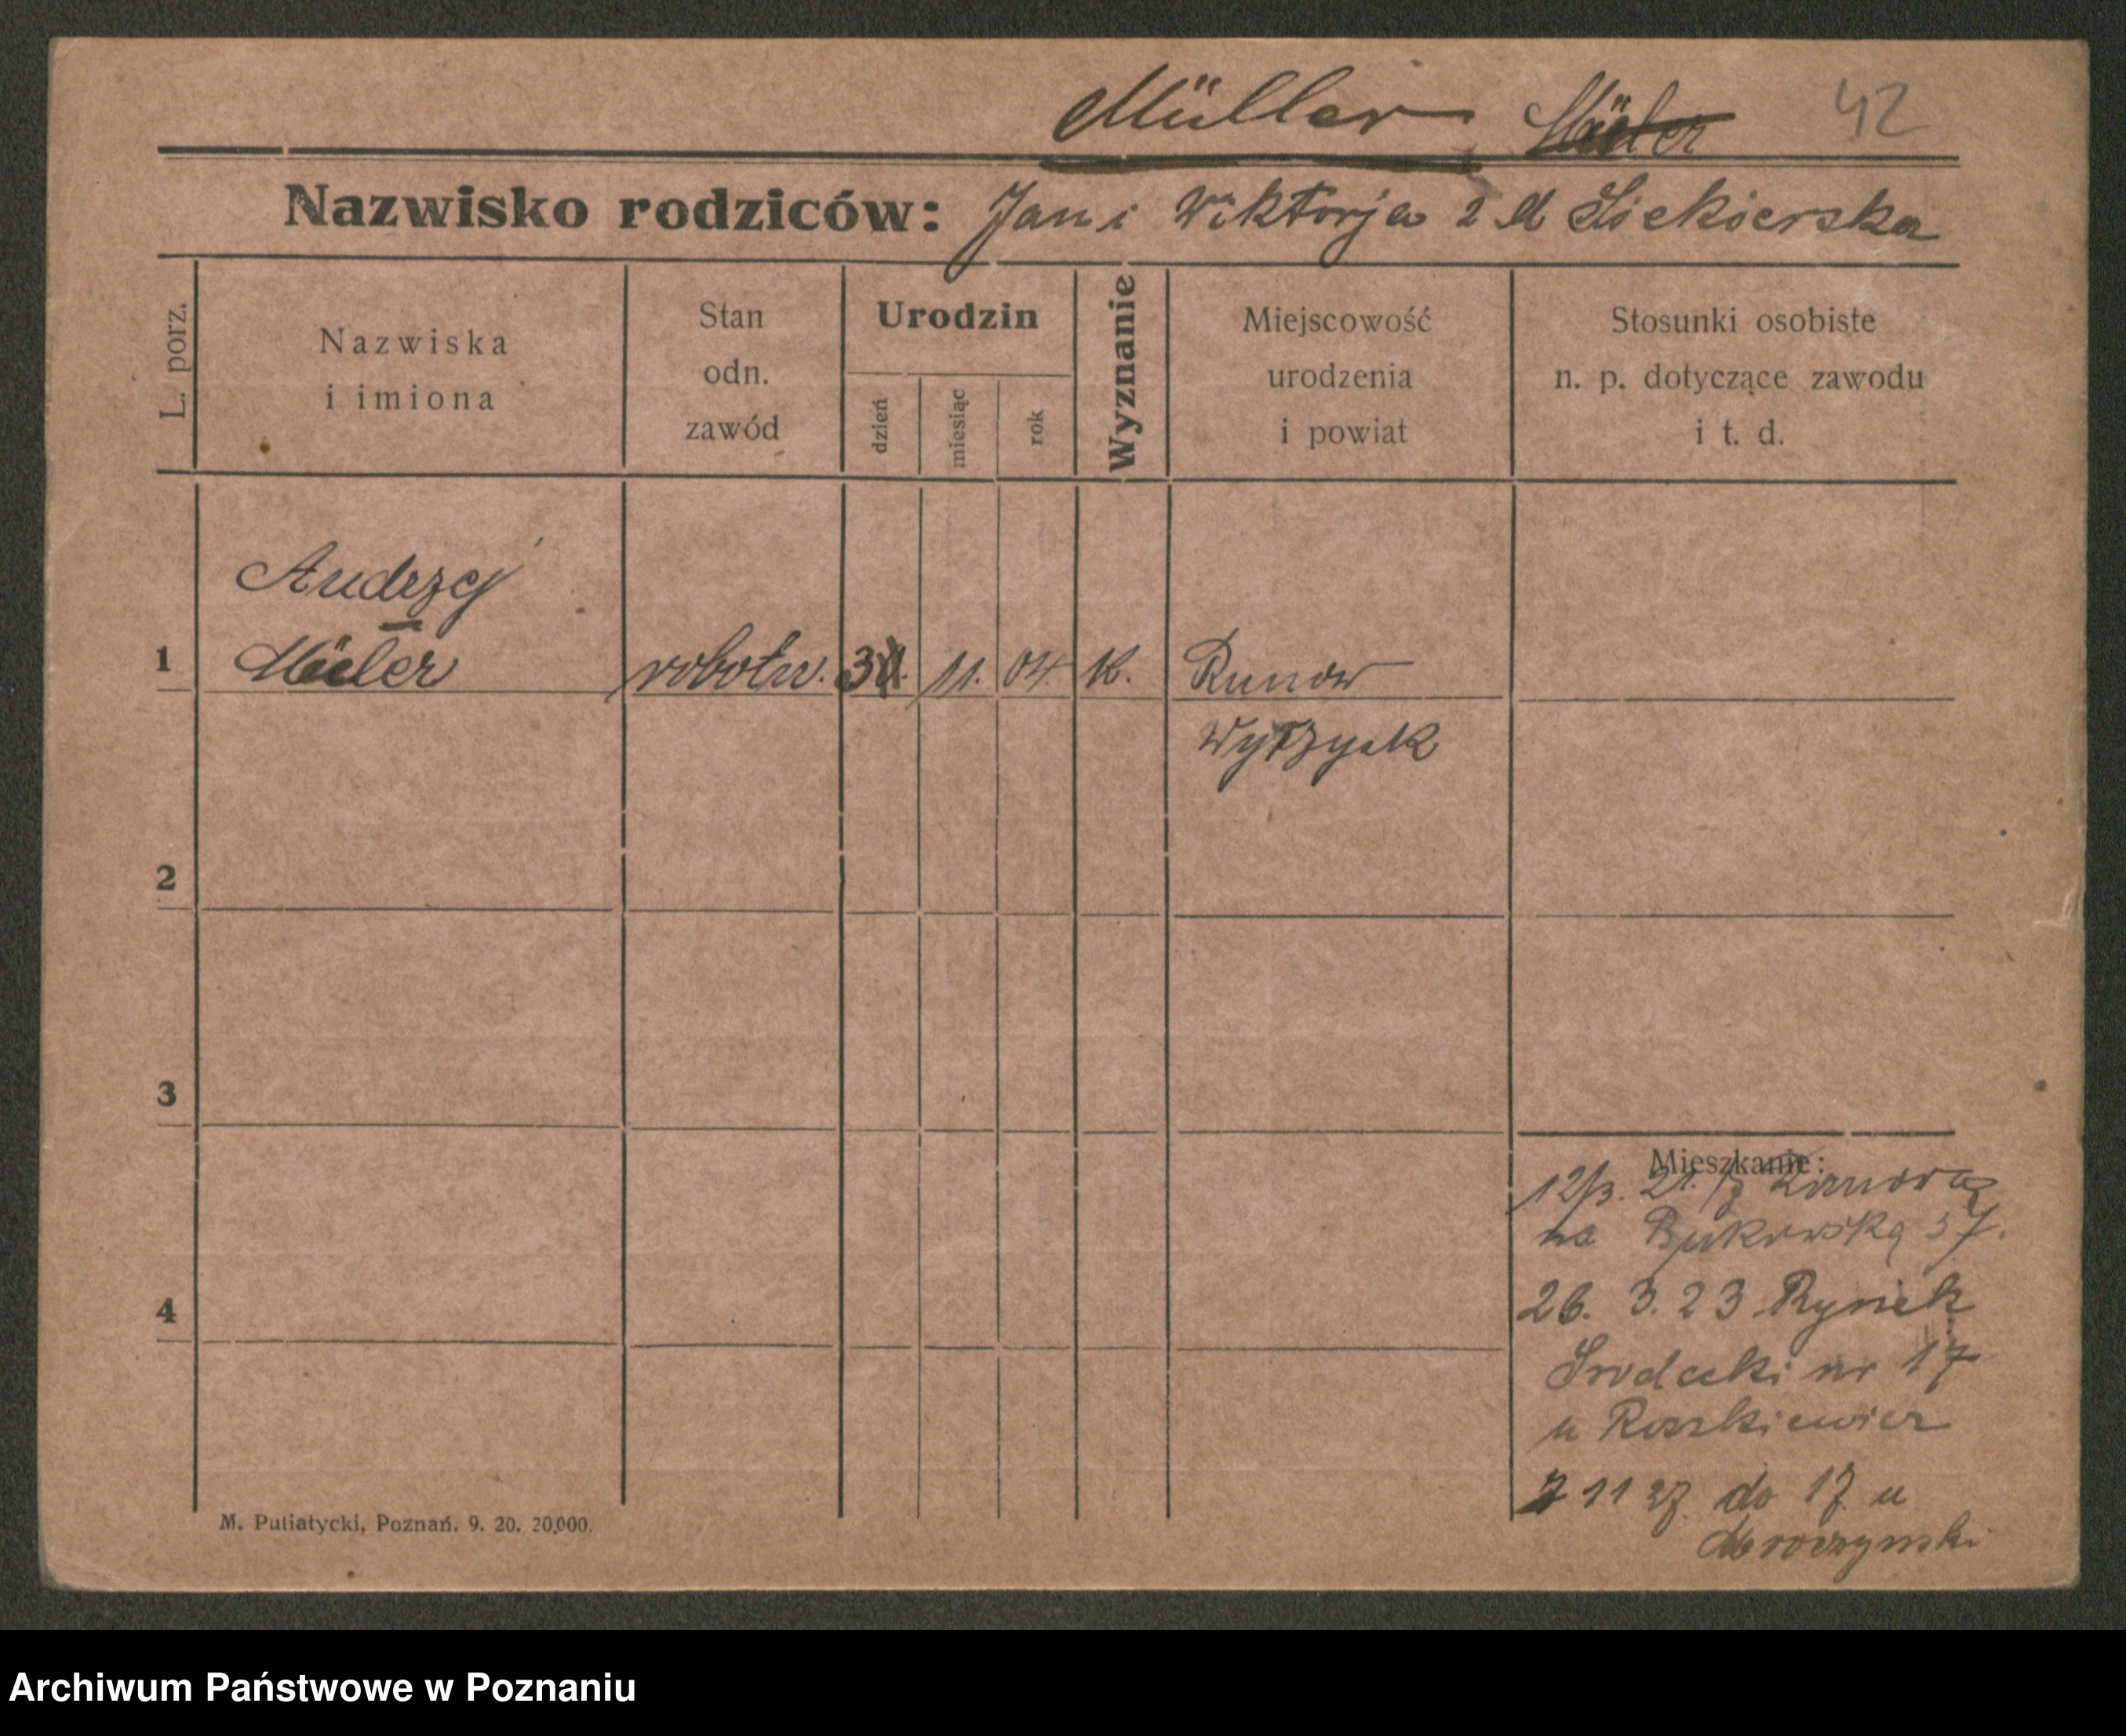 Müller Müler 42
Nazwisko rodziców: Jan i Wiktorja z d Siekierska
L. porz.
Nazwiska
i imiona
Stan
odn.
zawód
Urodzin
dzień
miesiąc
rok
Wyznanie
Miejscowość
urodzenia
i powiat
Stosunki osobiste
n. p. dotyczące zawodu
i t. d.
Andrzej
1 Müler robotn. 30. 11. 04. k. Runow
Wyrzysk
2
3
4
Mieszkanie:
12/3. 21. z
na Bukowską 37.
26. 3. 23 Rynek
Srodecki nr 17
u Roszkiewicz
7 11 27. do 17. u
Mroczynski
M. Putiatycki, Poznań. 9. 20. 20,000.
Archiwum Państwowe w Poznaniu